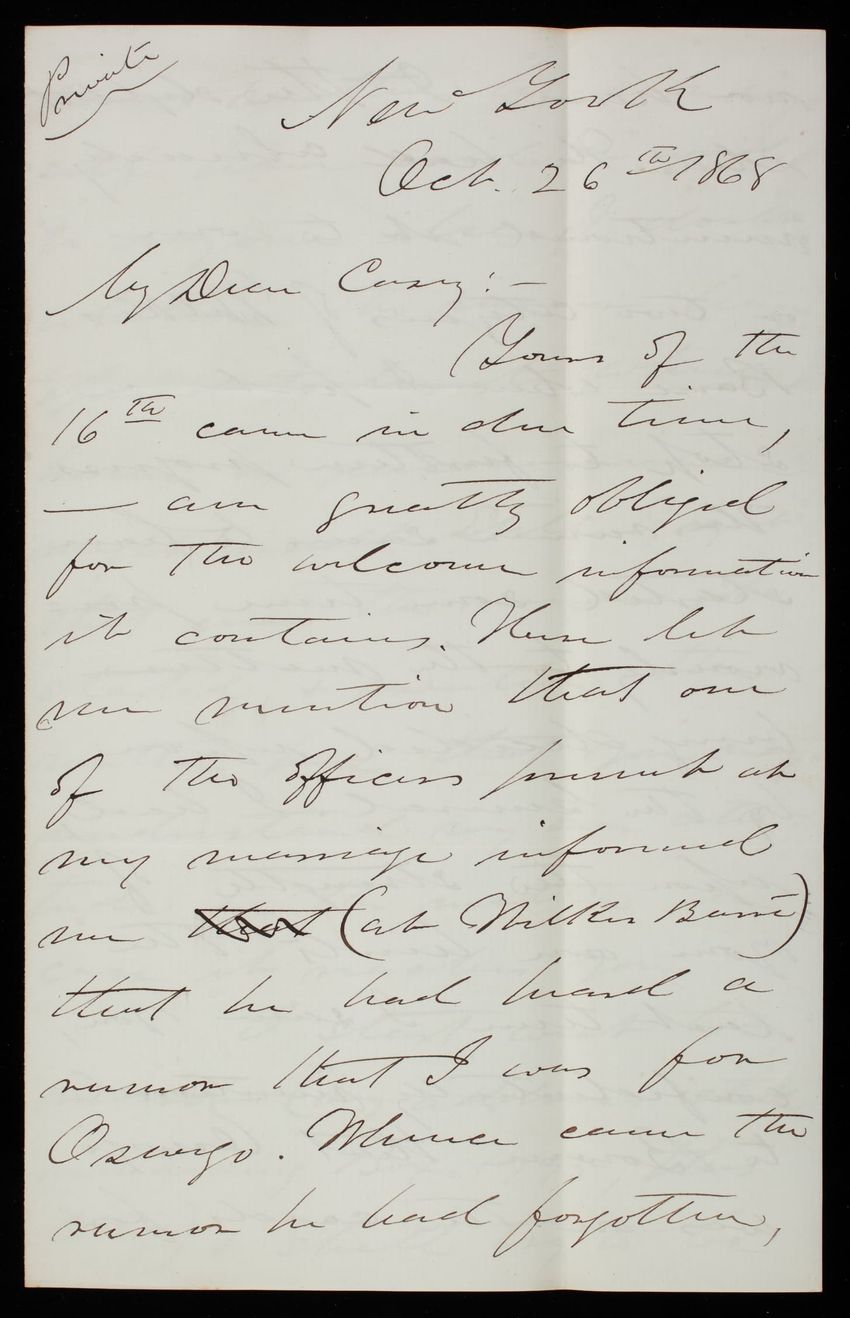 Private
New York
Oct. 26th 1868
My Dear Casey:—
Yours of the
16th came in due time,
— am greatly obliged
for the welcome information
it contains. Here let
me mention that one
of the officers present at
my marriage informed
me that (at Wilkes Barre)
that he had heard a
rumor that I was for
Oswego. Whence came the
rumor he had forgotten,